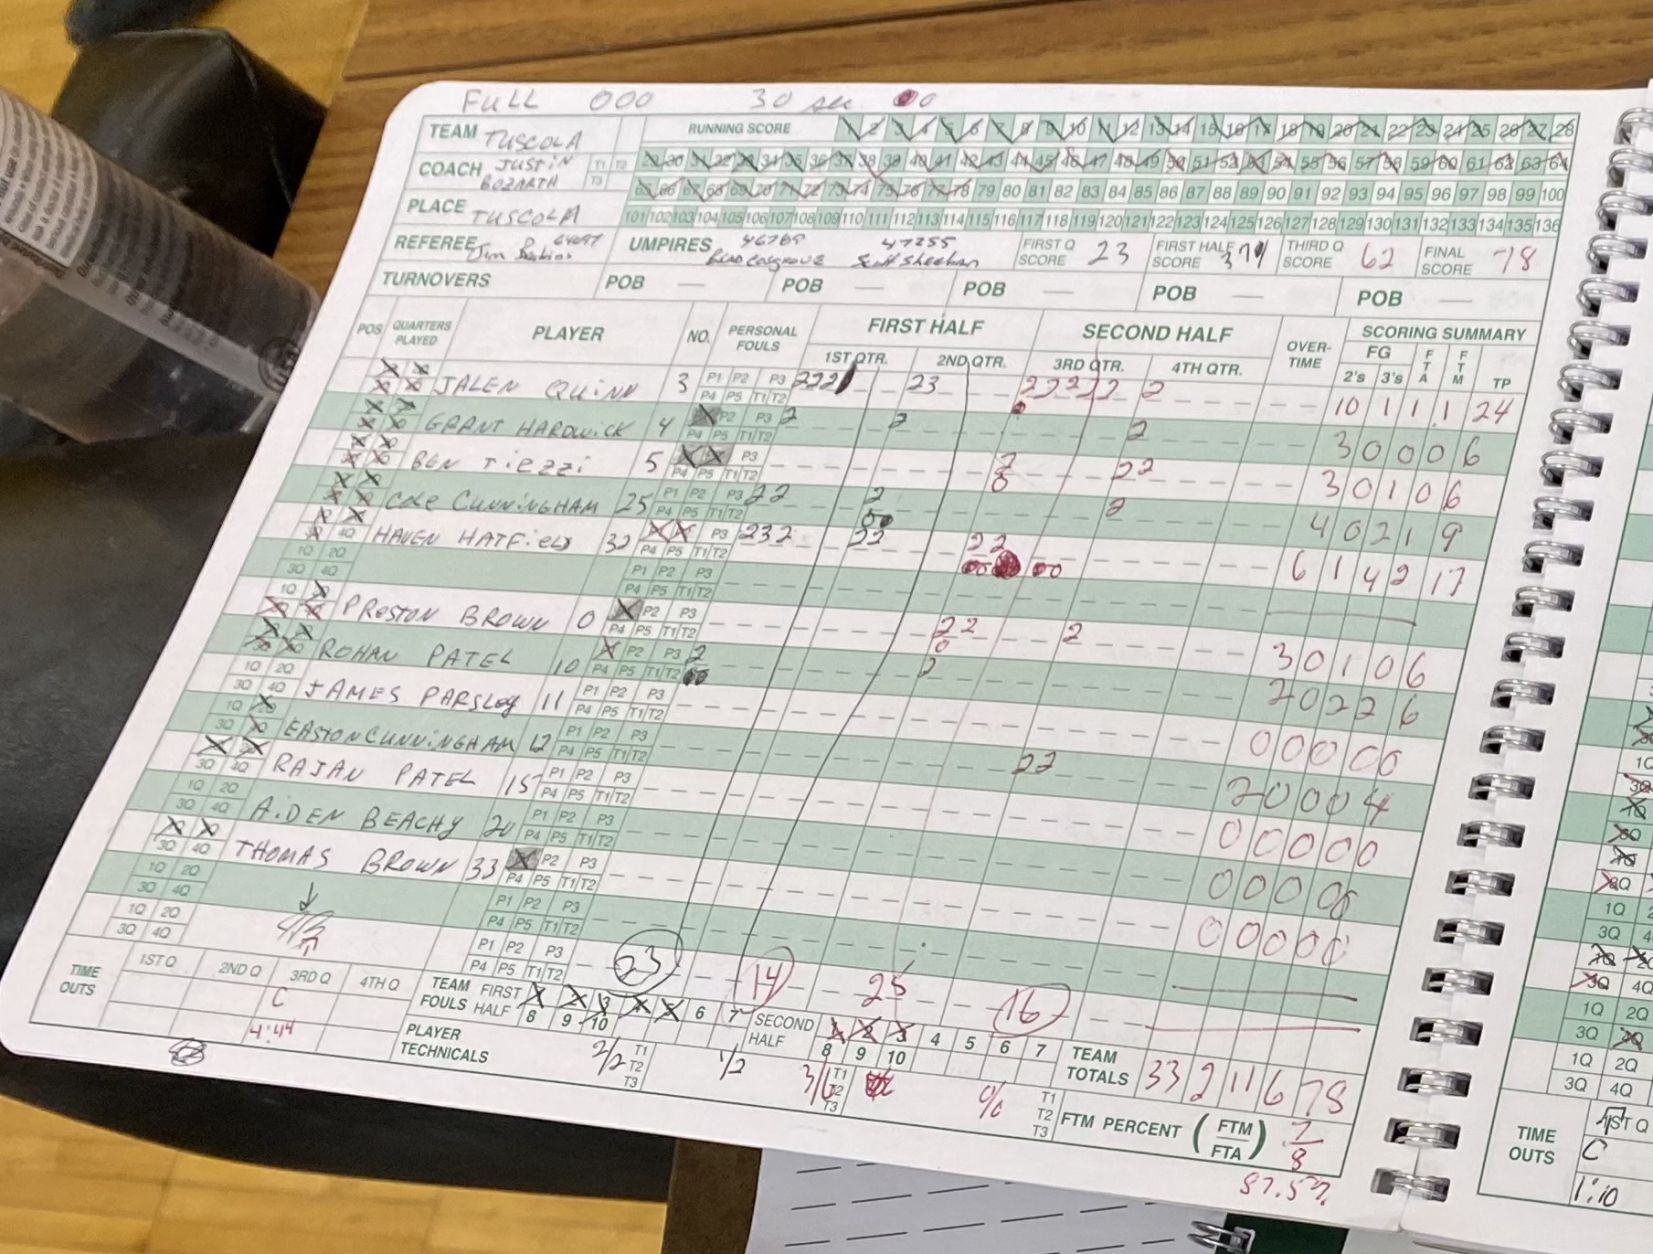 FULL 000 30 sec 0
TEAM TUSCOLA RUNNING SCORE 1 2 3 4 5 6 7 8 9 10 11 12 13 14 15 16 17 18 19 20 21 22 23 24 25 26 27 28
COACH JUSTIN BOZARTH T1 T2 T3 29 30 31 32 33 34 35 36 37 38 39 40 41 42 43 44 45 46 47 48 49 50 51 52 53 54 55 56 57 58 59 60 61 62 63 64
65 66 67 68 69 70 71 72 73 74 75 76 77 78 79 80 81 82 83 84 85 86 87 88 89 90 91 92 93 94 95 96 97 98 99 100
PLACE TUSCOLA 101 102 103 104 105 106 107 108 109 110 111 112 113 114 115 116 117 118 119 120 121 122 123 124 125 126 127 128 129 130 131 132 133 134 135 136
REFEREE Jim UMPIRES 46769 47255 Scott Sheehan FIRST Q SCORE 23 FIRST HALF SCORE 37 THIRD Q SCORE 62 FINAL SCORE 78
TURNOVERS POB — POB — POB — POB — POB —
POS QUARTERS PLAYED PLAYER NO. PERSONAL FOULS FIRST HALF SECOND HALF OVER-TIME SCORING SUMMARY
1ST QTR. 2ND QTR. 3RD QTR. 4TH QTR. FG 2's 3's FTA FTM TP
JALEN QUINN 3 P1 P2 P3 P4 P5 T1 T2 222 23 22222 2 10 1 1 1 24
GRANT HARDWICK 4 P2 P3 P4 P5 T1 T2 2 2 2 3 0 0 0 6
BEN TIEZZI 5 P3 P4 P5 T1 T2 2 0 22 3 0 1 0 6
COLE CUNNINGHAM 25 P1 P2 P3 P4 P5 T1 T2 22 2 2 4 0 2 1 9
HAVEN HATFIELD 32 P3 P4 P5 T1 T2 232 22 22 6 1 4 2 17
1Q 2Q 3Q 4Q P1 P2 P3 P4 P5 T1 T2
1Q PRESTON BROWN 0 P2 P3 P4 P5 T1 T2 22 0 2 3 0 1 0 6
ROHAN PATEL 10 P2 P3 P4 P5 T1 T2 2 2 2 0 2 2 6
1Q 2Q 3Q 4Q JAMES PARSLEY 11 P1 P2 P3 P4 P5 T1 T2 0 0 0 0 0
1Q 3Q EASTON CUNNINGHAM 12 P1 P2 P3 P4 P5 T1 T2 22 2 0 0 0 4
3Q 4Q RAJAN PATEL 15 P1 P2 P3 P4 P5 T1 T2 0 0 0 0 0
1Q 2Q 3Q 4Q AIDEN BEACHY 20 P1 P2 P3 P4 P5 T1 T2 0 0 0 0 0
3Q 4Q THOMAS BROWN 33 P2 P3 P4 P5 T1 T2 0 0 0 0 0
1Q 2Q 3Q 4Q P1 P2 P3 P4 P5 T1 T2
1Q 2Q 3Q 4Q P1 P2 P3 P4 P5 T1 T2 23 14 25 16
TIME OUTS 1ST Q 2ND Q 3RD Q 4TH Q TEAM FOULS FIRST HALF 1 2 3 4 5 6 7 8 9 10 SECOND HALF 1 2 3 4 5 6 7 8 9 10 TEAM TOTALS 33 2 11 6 78
C
4:44
PLAYER TECHNICALS 2/2 T1 T2 T3 1/2 T1 T2 T3 T1 T2 T3 FTM PERCENT (FTM/FTA) 7/8
87.5%
1Q
1Q 2
3Q 4Q
3Q 4Q
1Q 2Q
3Q
1Q 2Q
3Q 4Q
TIME OUTS 1ST Q
C
1:10